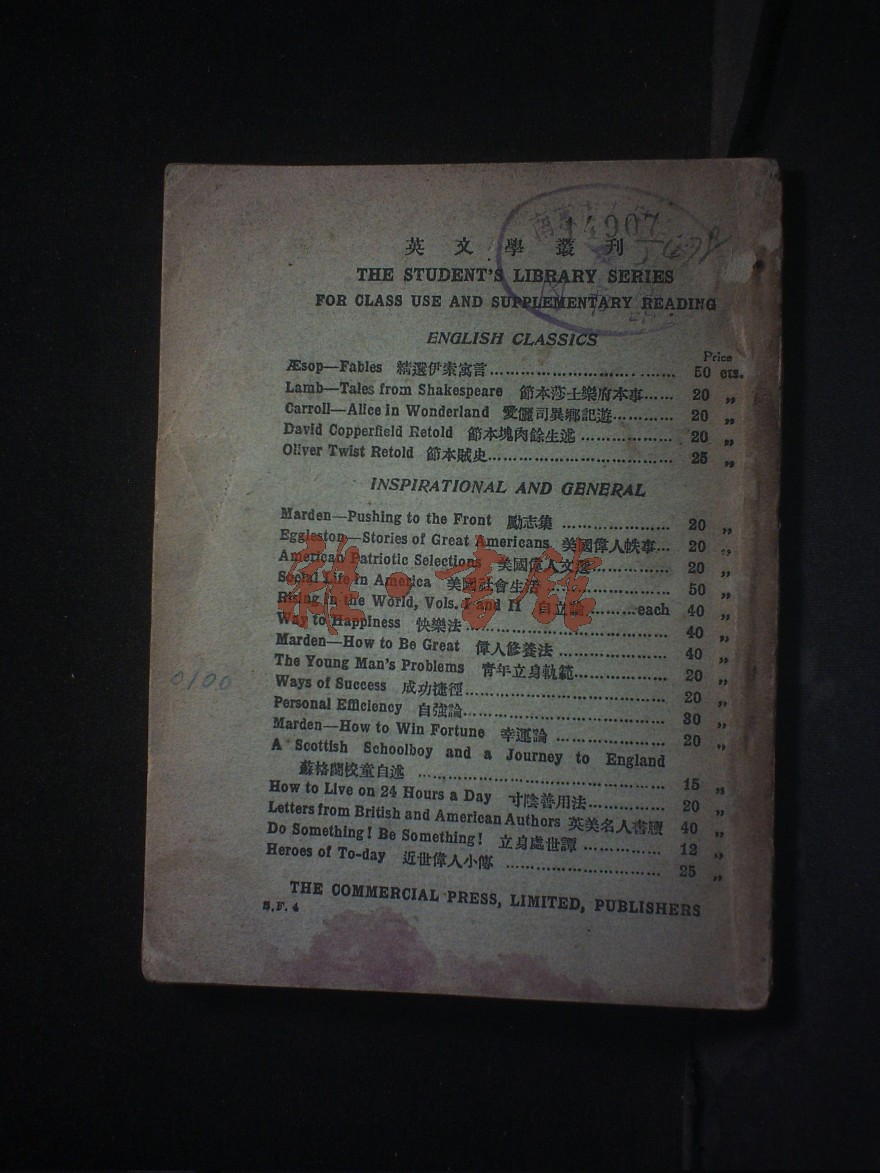 14907
英文學叢刊
THE STUDENT'S LIBRARY SERIES
FOR CLASS USE AND SUPPLEMENTARY READING
ENGLISH CLASSICS
Price
Æsop—Fables 精選伊索寓言 50 cts.
Lamb—Tales from Shakespeare 節本莎士樂府本事 20 „
Carroll—Alice in Wonderland 愛儷司異鄉記遊 20 „
David Copperfield Retold 節本塊肉餘生述 20 „
Oliver Twist Retold 節本賊史 25 „
INSPIRATIONAL AND GENERAL
Marden—Pushing to the Front 勵志集 20 „
Eggleston—Stories of Great Americans 美國偉人軼事 20 „
American Patriotic Selections 美國偉人文選 20 „
Social Life in America 美國社會生活 50 „
Rising in the World, Vols. I and II 自立論 each 40 „
Way to Happiness 快樂法 40 „
Marden—How to Be Great 偉人修養法 40 „
The Young Man's Problems 青年立身軌範 20 „
Ways of Success 成功捷徑 20 „
Personal Efficiency 自強論 30 „
Marden—How to Win Fortune 幸運論 20 „
A Scottish Schoolboy and a Journey to England
蘇格蘭校童自述 15 „
How to Live on 24 Hours a Day 寸陰善用法 20 „
Letters from British and American Authors 英美名人書牘 40 „
Do Something! Be Something! 立身處世譚 12 „
Heroes of To-day 近世偉人小傳 25 „
THE COMMERCIAL PRESS, LIMITED, PUBLISHERS
S.F. 4
0100
雅·書館